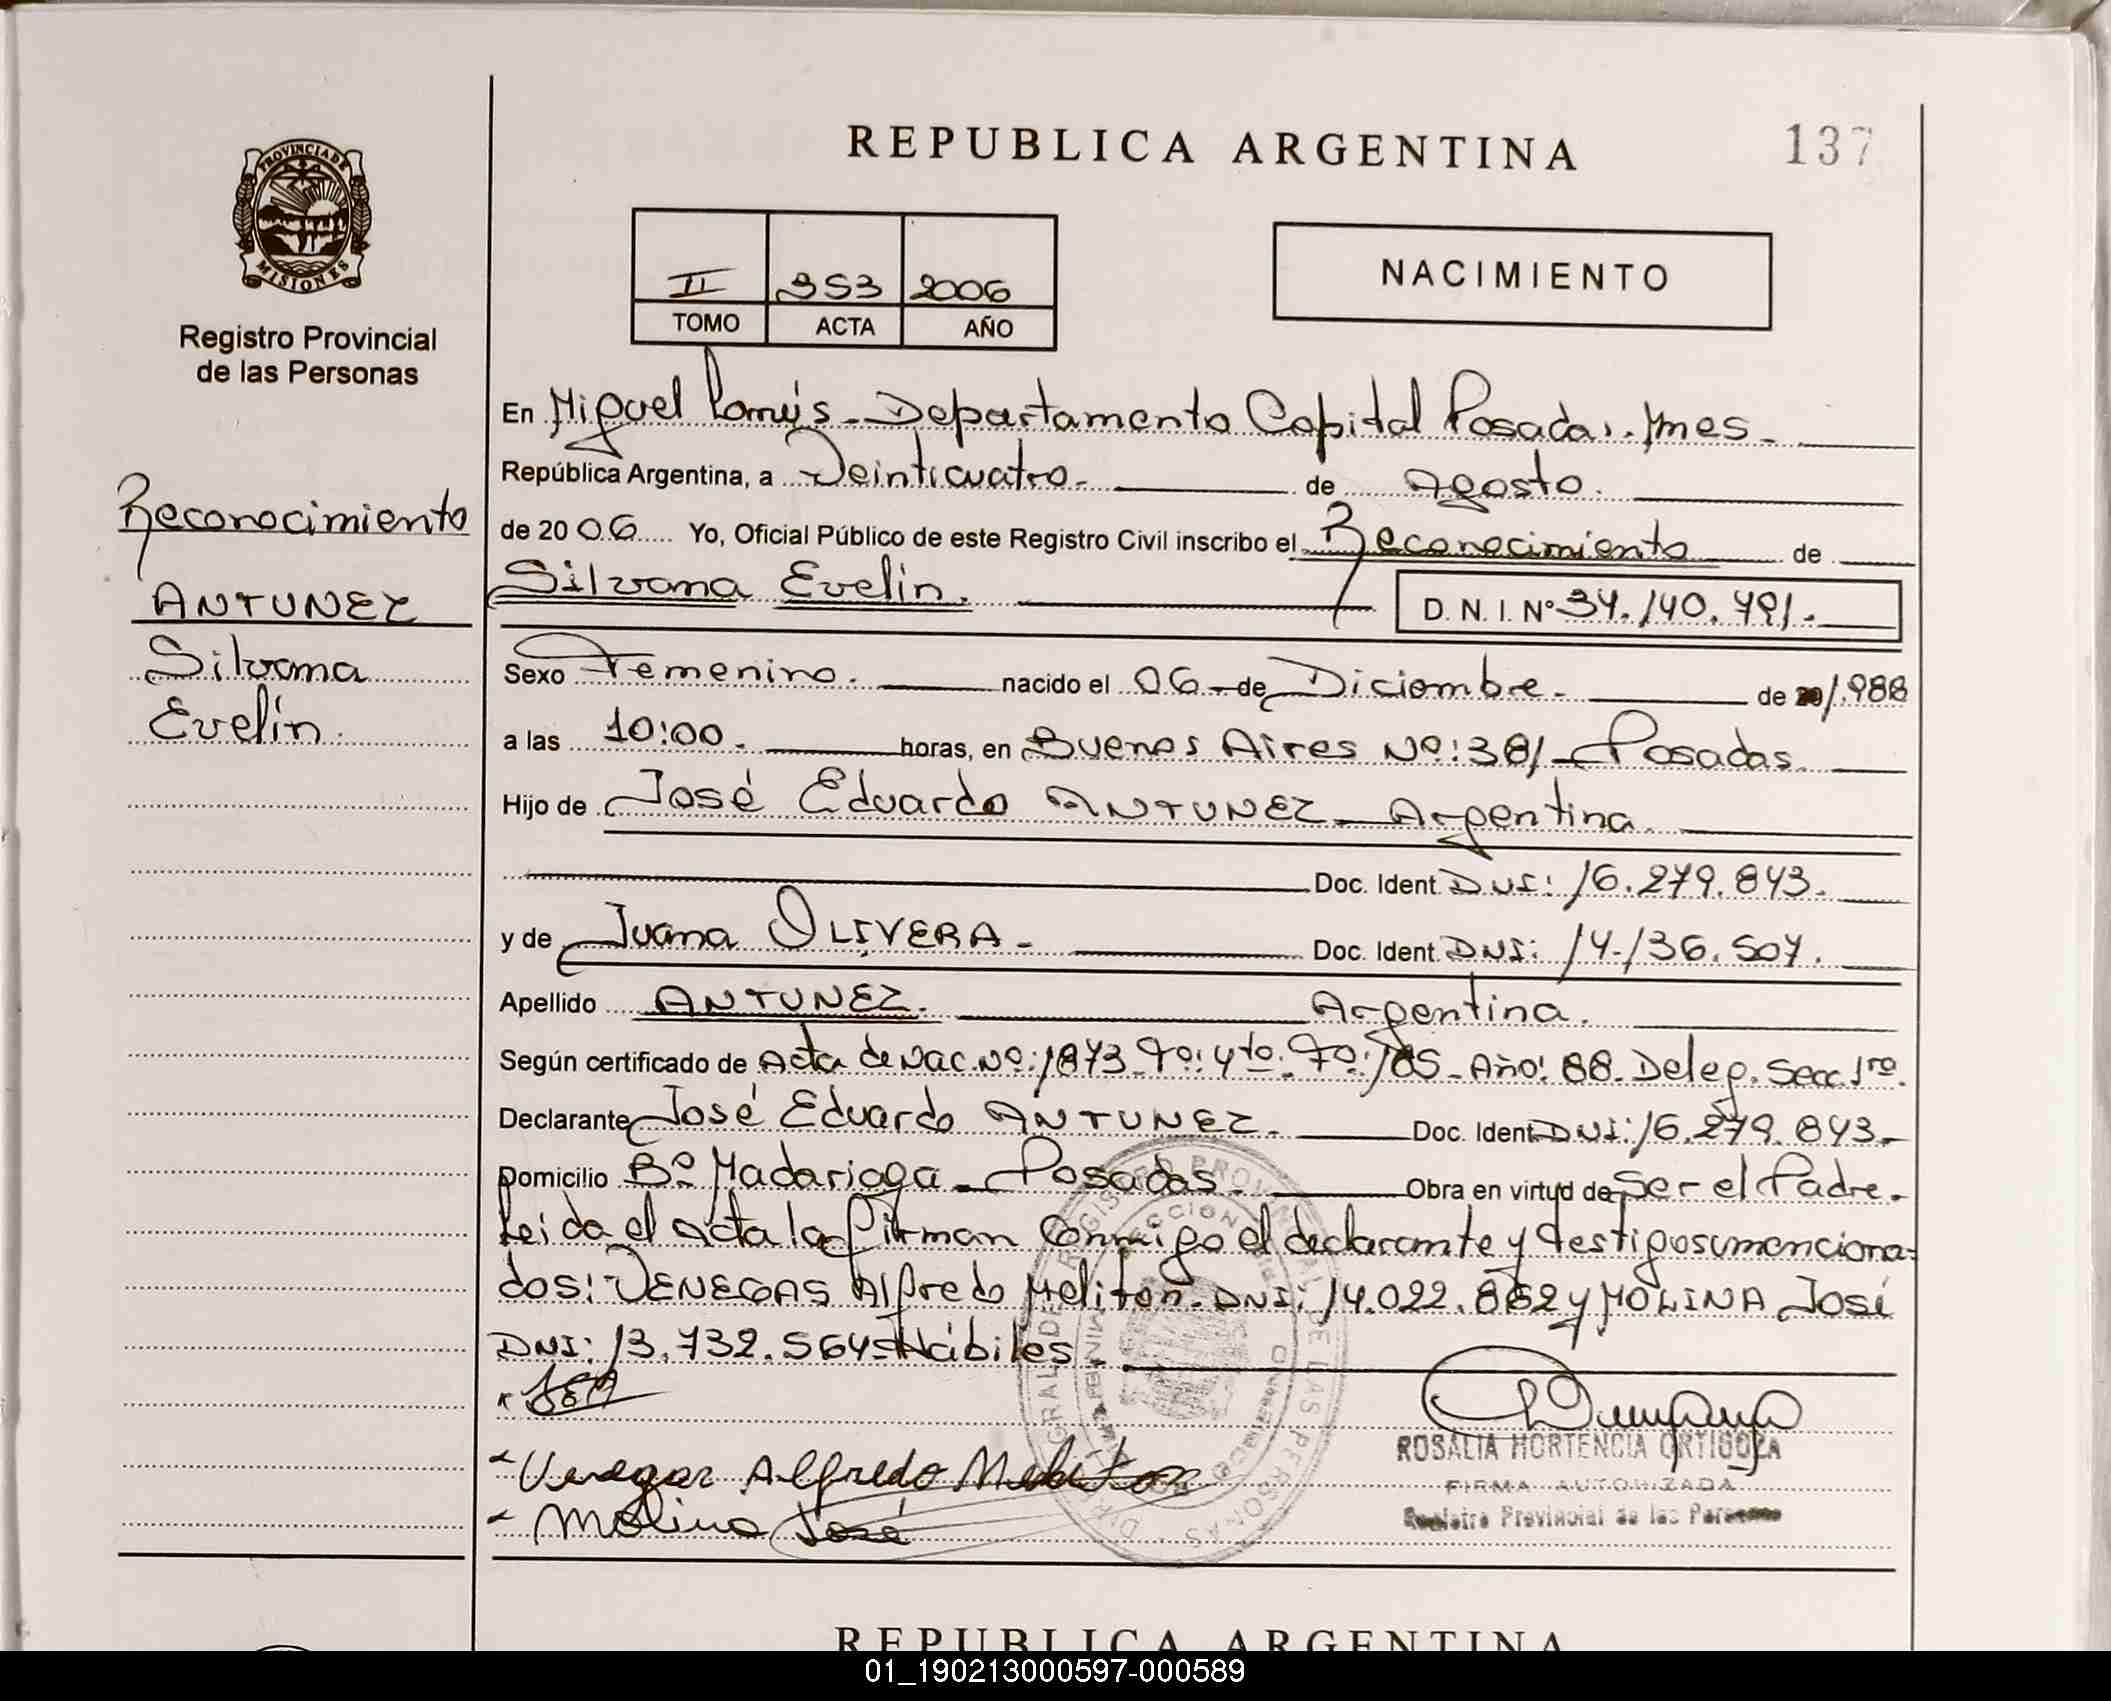 REPUBLICA ARGENTINA
137
PROVINCIA DE
MISIONES
Registro Provincial
de las Personas
II 353 2006
TOMO ACTA AÑO
NACIMIENTO
Reconocimiento
ANTUNEZ
Silvana
Evelin.
En Miguel Lanús - Departamento Capital Posadas. Mnes -
República Argentina, a Veinticuatro - de Agosto.
de 2006 Yo, Oficial Público de este Registro Civil inscribo el Reconocimiento de
Silvana Evelin.
D. N. I. Nº 34.140.791.
Sexo Femenino. nacido el 06 - de Diciembre - de 1.988
a las 10:00. horas, en Buenos Aires Nº: 381 - Posadas.
Hijo de José Eduardo ANTUNEZ - Argentina.
Doc. Ident. DNI: 16.279.843.
y de Juana OLIVERA - Doc. Ident. DNI: 14.136.507.
Apellido ANTUNEZ. Argentina.
Según certificado de Acta de Nac. Nº: 1873 - Tº: 4to. - Fº: 185 - Año: 88. Deleg. Secc. 1ra.
Declarante José Eduardo ANTUNEZ - Doc. Ident. DNI: 16.279.843 -
Domicilio Bº Madariaga - Posadas. Obra en virtud de Ser el Padre.
Leida el acta la firman Conmigo el declarante y testigos menciona-
dos: VENEGAS Alfredo Meliton. DNI: 14.022.862 y MOLINA José
DNI: 13.732.564 - Hábiles
JEA
Venegas Alfredo Meliton
Molina José
ROSALIA HORTENCIA ORTIGOZA
FIRMA AUTORIZADA
Registro Provincial de las Personas
REPUBLICA ARGENTINA
01_190213000597-000589